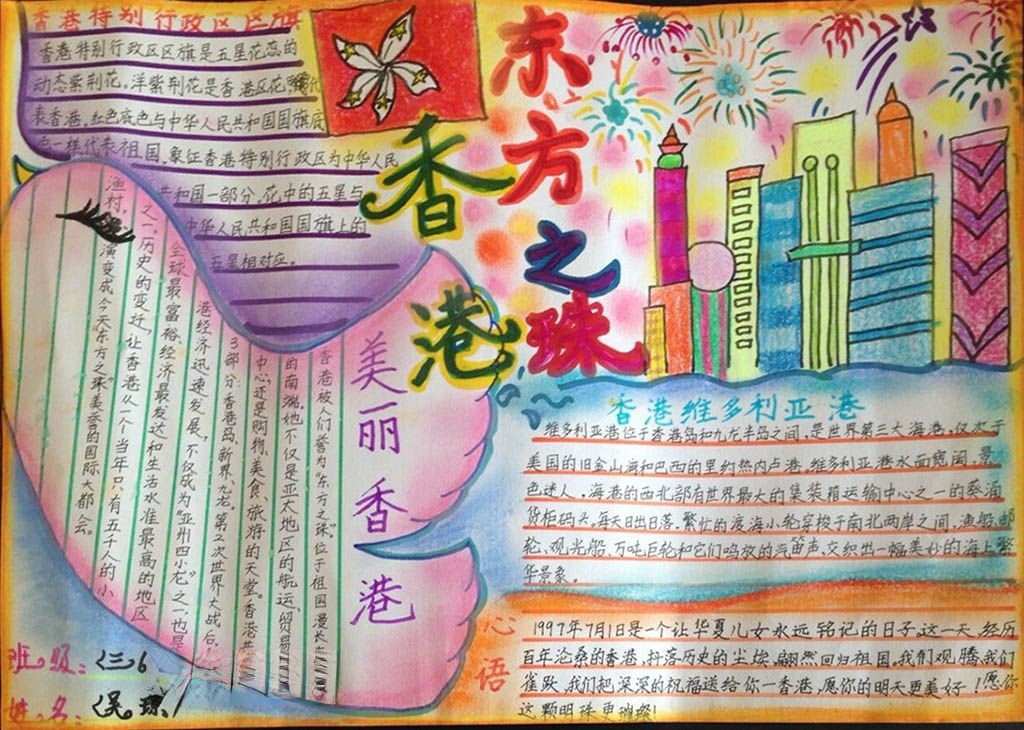 香港特别行政区区旗
香港特别行政区区旗是五星花蕊的
动态紫荆花。洋紫荆花是香港区花
表香港,红色底色与中华人民共和国国旗底
色一样代表祖国,象征香港特别行政区为中华人民
共和国一部分,花中的五星与
中华人民共和国国旗上的
五星相对应。
东方之珠
香港
美丽香港
香港被人们誉为“东方之珠”位于祖国漫长
的南端。她不仅是亚太地区的航运、贸易
中心,还是购物、美食、旅游的天堂。香港共
3部分:香港岛、新界、九龙。第2次世界大战后,
港经济迅速发展,不仅成为“亚州四小龙”之一,也是
全球最富裕、经济最发达和生活水准最高的地区
之一。历史的变迁,让香港从一个当年只有五千人的小
渔村,演变成今天“东方之珠”美誉的国际大都会。
香港维多利亚港
维多利亚港位于香港岛和九龙半岛之间,是世界第三大海港,仅次于
美国的旧金山湾和巴西的里约热内卢港,维多利亚港水面宽阔,景
色迷人,海港的西北部有世界最大的集装箱运输中心之一的葵涌
货柜码头。每天日出日落,繁忙的渡海小轮穿梭于南北两岸之间,渔船、邮
轮、观光船、万吨巨轮和它们鸣放的汽笛声,交织出一幅美妙的海上繁
华景象。
心语
1997年7月1日是一个让华夏儿女永远铭记的日子,这一天,经历
百年沧桑的香港,抖落历史的尘埃,翩然回归祖国。我们欢腾,我们
雀跃,我们把深深的祝福送给你一香港,愿你的明天更美好!愿你
这颗明珠更璀璨!
班级:三6
姓名:吴琼